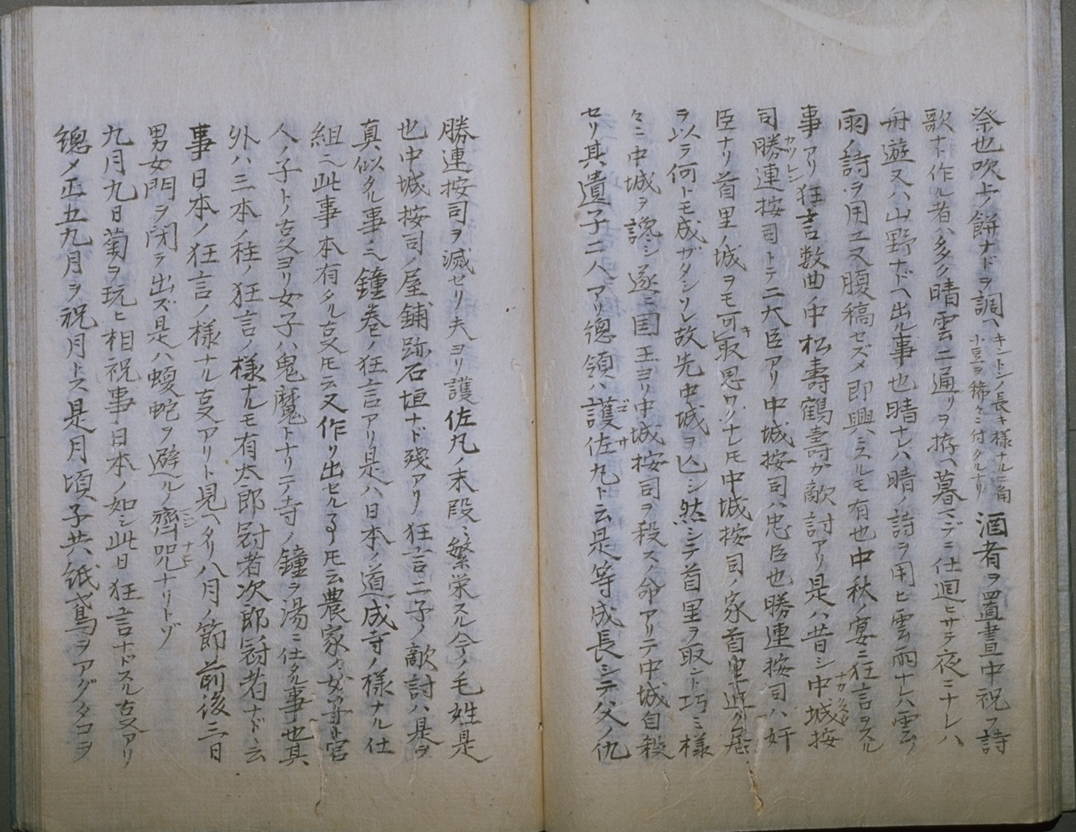 祭也吹上ノ餅ナドヲ調ヘキントンノ長キ様ナルニ角小豆ヲ稀々ニ付タルナリ酒肴ヲ置晝中祝フ詩
歌ナド作ル者ハ多ク晴雲二通リヲ拵ヘ暮マデニ仕廻ヒサテ夜ニナレハ
舟遊又ハ山野ナドヘ出ル事也晴ナレハ晴ノ詩ヲ用ヒ雲雨ナレハ雲ノ
雨ノ詩ヲ用ユ又腹稿セズメ即興ニスルモ有也中秋ノ宴ニ狂言ヲスル
事アリ狂言数曲中松壽鶴壽ガ敵討アリ是ハ昔シ中城按
司勝連按司トテ二大臣アリ中城按司ハ忠臣也勝連按司ハ奸
臣ナリ首里ノ城ヲモ可取思ワクナレ𪜈中城按司ノ家首里近ク居
ヲ以ラ何トモ成ガタシソレ故先中城ヲ亡シ然シテ首里ヲ取ント巧ミ様
々ニ中城ヲ讒シ遂ニ国王ヨリ中城按司ヲ殺スノ命アリテ中城自殺
セリ其遺子二人アリ總領ハ護佐九ト云是等成長シテ父ノ仇
勝連按司ヲ滅セリ夫ヨリ護佐丸ノ末段々繁栄スル今ノ毛姓是
也中城按司ノ屋鋪跡石垣ナド残アリ狂言二子ノ敵討ハ是ヲ
真似タル事ニ鐘巻ノ狂言アリ是ハ日本ノ道成寺ノ様ナル仕
組ニ此事本有タル叓𪜈云又作リ出セル𪜈云農家ノ女子寺宮
人ノ子トノ叓ヨリ女子ハ鬼魔トナリニノ寺ノ鐘ヲ湯ミ仕タル事也其
外ハ三本ノ柱ノ狂言ノ様ナルモ有太郎冠者次郎冠者ナド云
事日本ノ狂言ノ様ナル叓アリト見ヘタリ八月ノ節前後三日
男女門ヲ閉ヲ出ズ是ハ蝮蛇ヲ避ルノ齊咒ナリトゾ
九月九日菊ヲ玩ヒ相祝事日本ノ如シ此日狂言ナドスル叓アリ
總メ正五九月ヲ祝月トス是月頃子共紙鳶ヲアグタコヲ